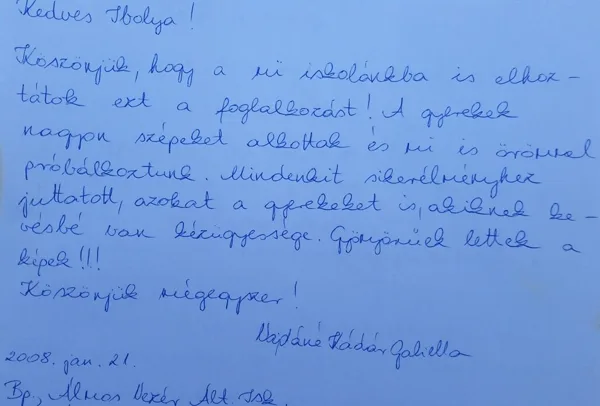 Kedves Ibolya!
Köszönjük, hogy a mi iskolánkba is elhoz-
tátok ezt a foglalkozást! A gyerekek
nagyon szépeket alkottak és mi is örömmel
próbálkoztunk. Mindenkit sikerélményhez
juttatott, azokat a gyerekeket is, akiknek ke-
vésbé van kézügyessége. Gyönyörűek lettek a
képek!!!
Köszönjük mégegyszer!
Vajdáné Kádár Gabiella
2008. jan. 21.
Bp., Álmos Vezér Ált. Isk.